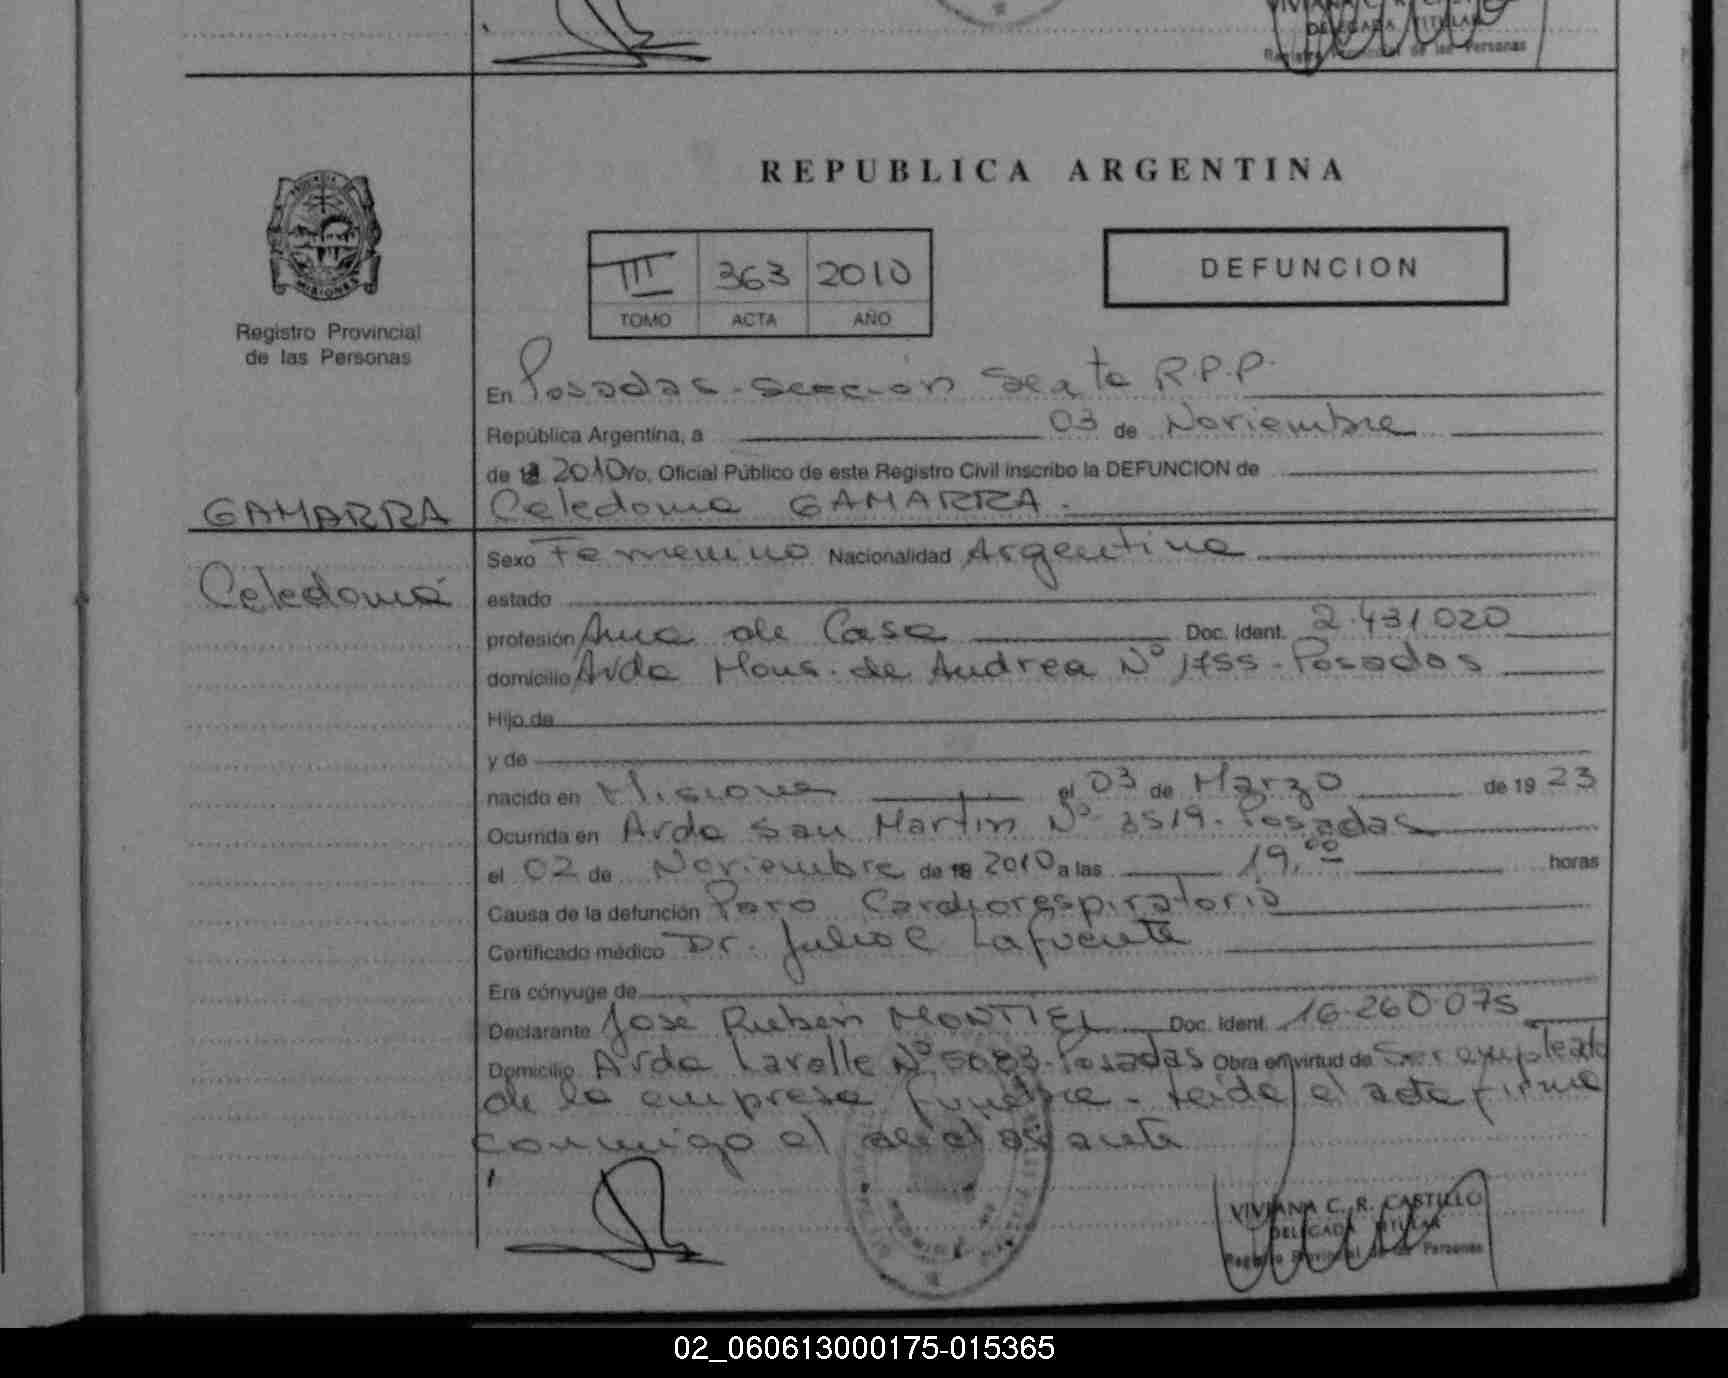 VIVIANA C. R. CASTILLO
DELEGADA TITULAR
Registro Provincial de las Personas
REPUBLICA ARGENTINA
III 363 2010
TOMO ACTA AÑO
DEFUNCION
PROVINCIA
MISIONES
Registro Provincial
de las Personas
En Posadas - Sección Sexta R.P.P.
República Argentina, a 03 de Noviembre
de 2010 Yo, Oficial Público de este Registro Civil inscribo la DEFUNCION de
GAMARRA
Celedonia GAMARRA.
Celedonia
Sexo Femenino Nacionalidad Argentina
estado
profesión Ama de Casa Doc. Ident. 2.431.020
domicilio Avda Mons. de Andrea Nº 1755 - Posadas
Hijo de
y de
nacido en Misiones el 03 de Marzo de 19 23
Ocurrida en Avda San Martin Nº 3519 - Posadas
el 02 de Noviembre de 2010 a las 19,00 horas
Causa de la defunción Paro Cardiorespiratorio
Certificado médico Dr. Julio C Lafuente
Era cónyuge de
Declarante José Ruben MONTIEL Doc. Ident. 16.260.075
Domicilio Avda Lavalle Nº 5083 - Posadas Obra en virtud de Ser empleado
de la empresa fúnebre - Leida el acta firma
conmigo el declarante
VIVIANA C. R. CASTILLO
DELEGADA TITULAR
Registro Provincial de las Personas
02_060613000175-015365